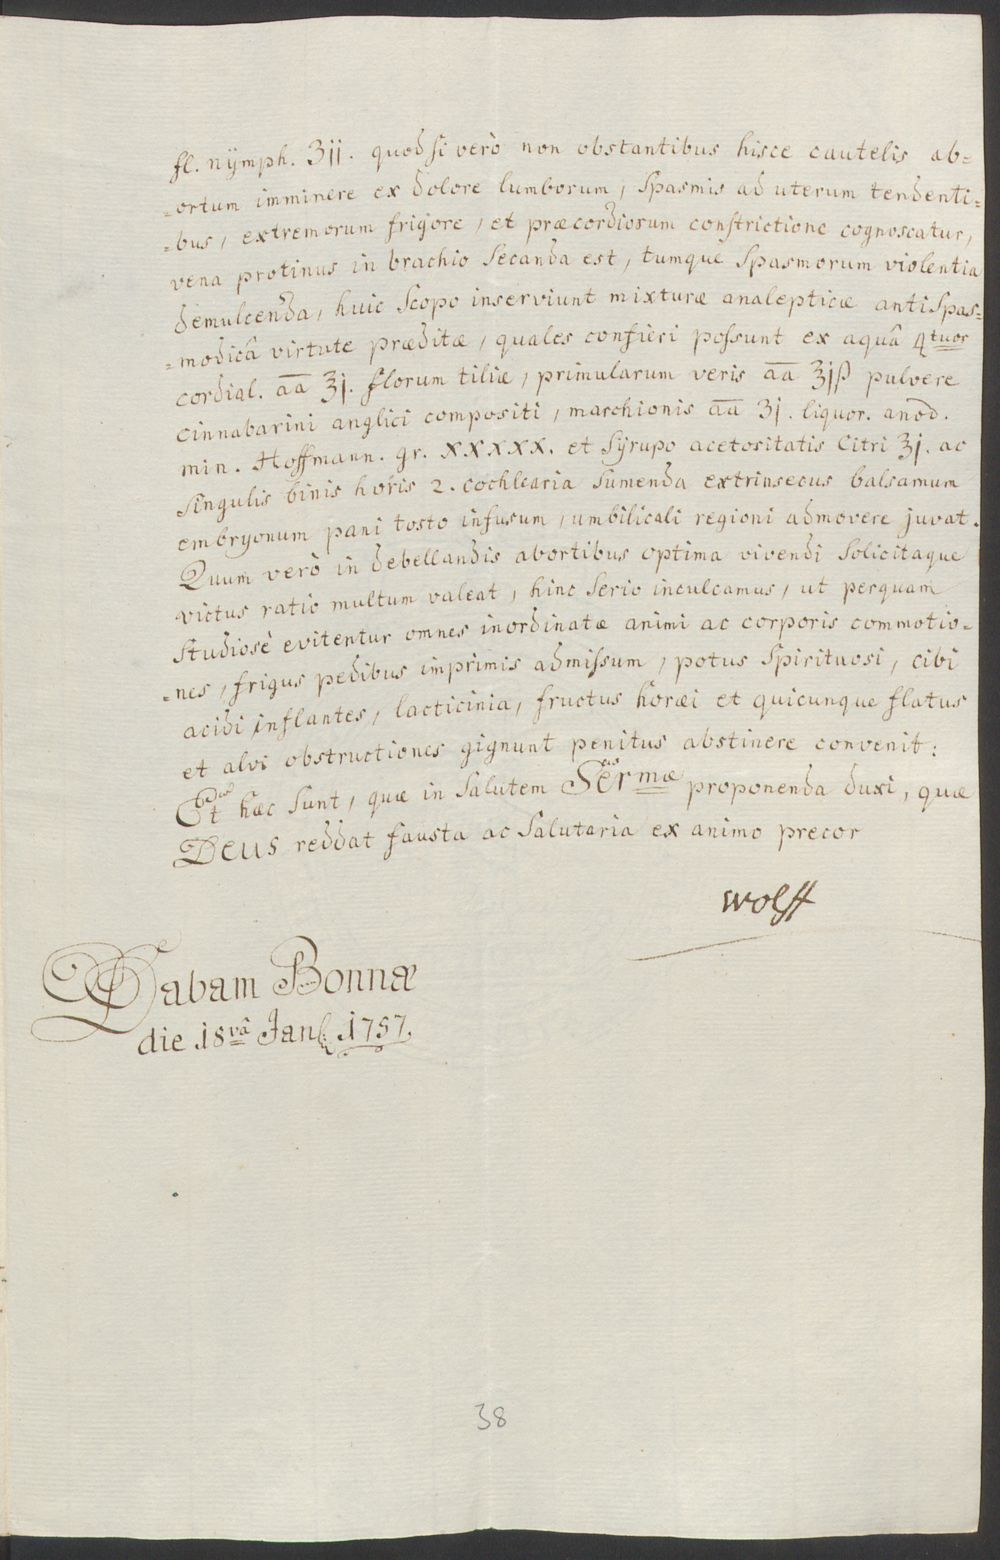 fl. nÿmph. ʒıı. quod si verò non obstantibus hisce cautelis ab=
=ortum imminere ex dolore lumborum, spasmis ad uterum tendenti=
=bus, extremorum frigore, et præcordiorum constrictione cognoscatur,
vena protinus in brachio secanda est, tumque spasmorum violentia
demulcenda, huic scopo inserviunt mixturæ analepticæ antispas=
=modicâ virtute præditæ, quales confieri possunt ex aquâ 4tuor
cordial. āā ℥j. florum tiliæ, primularum veris āā ℥jß pulvere
cinnabarini anglici compositi, marchionis āā ʒj. liquor. anod.
min. Hoffmann. gr. xxxxx. et sÿrupo acetositatis Citri ℥j. ac
singulis binis horis 2. cochlearia sumenda extrinsecus balsamum
embryonum pani tosto infusum, umbilicali regioni admovere juvat.
Quum verò in debellandis abortibus optima vivendi solicitaque
victus ratio multum valeat, hinc serio inculcamus, ut perquam
studiosè evitentur omnes inordinatæ animi ac corporis commotio=
=nes, frigus pedibus imprimis admissum, potus spirituosi, cibi
acidi inflantes, lacticinia, fructus horæi et quicunque flatus
et alvi obstructiones gignunt penitus abstinere convenit:
Et hæc sunt, quæ in salutem Sermæ proponenda duxi, quæ
Deus reddat fausta ac salutaria ex animo precor
Wolff
Dabam Bonnæ
die 18vâ Jan: 1757.
38